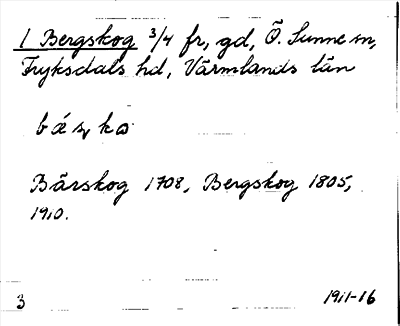 1 Bergskog 3/4 fr, gd, Ö. Sunne sn,
Fryksdals hd, Värmlands län
Bärskog 1708, Bergskog 1805,
1910.
3 1911-16